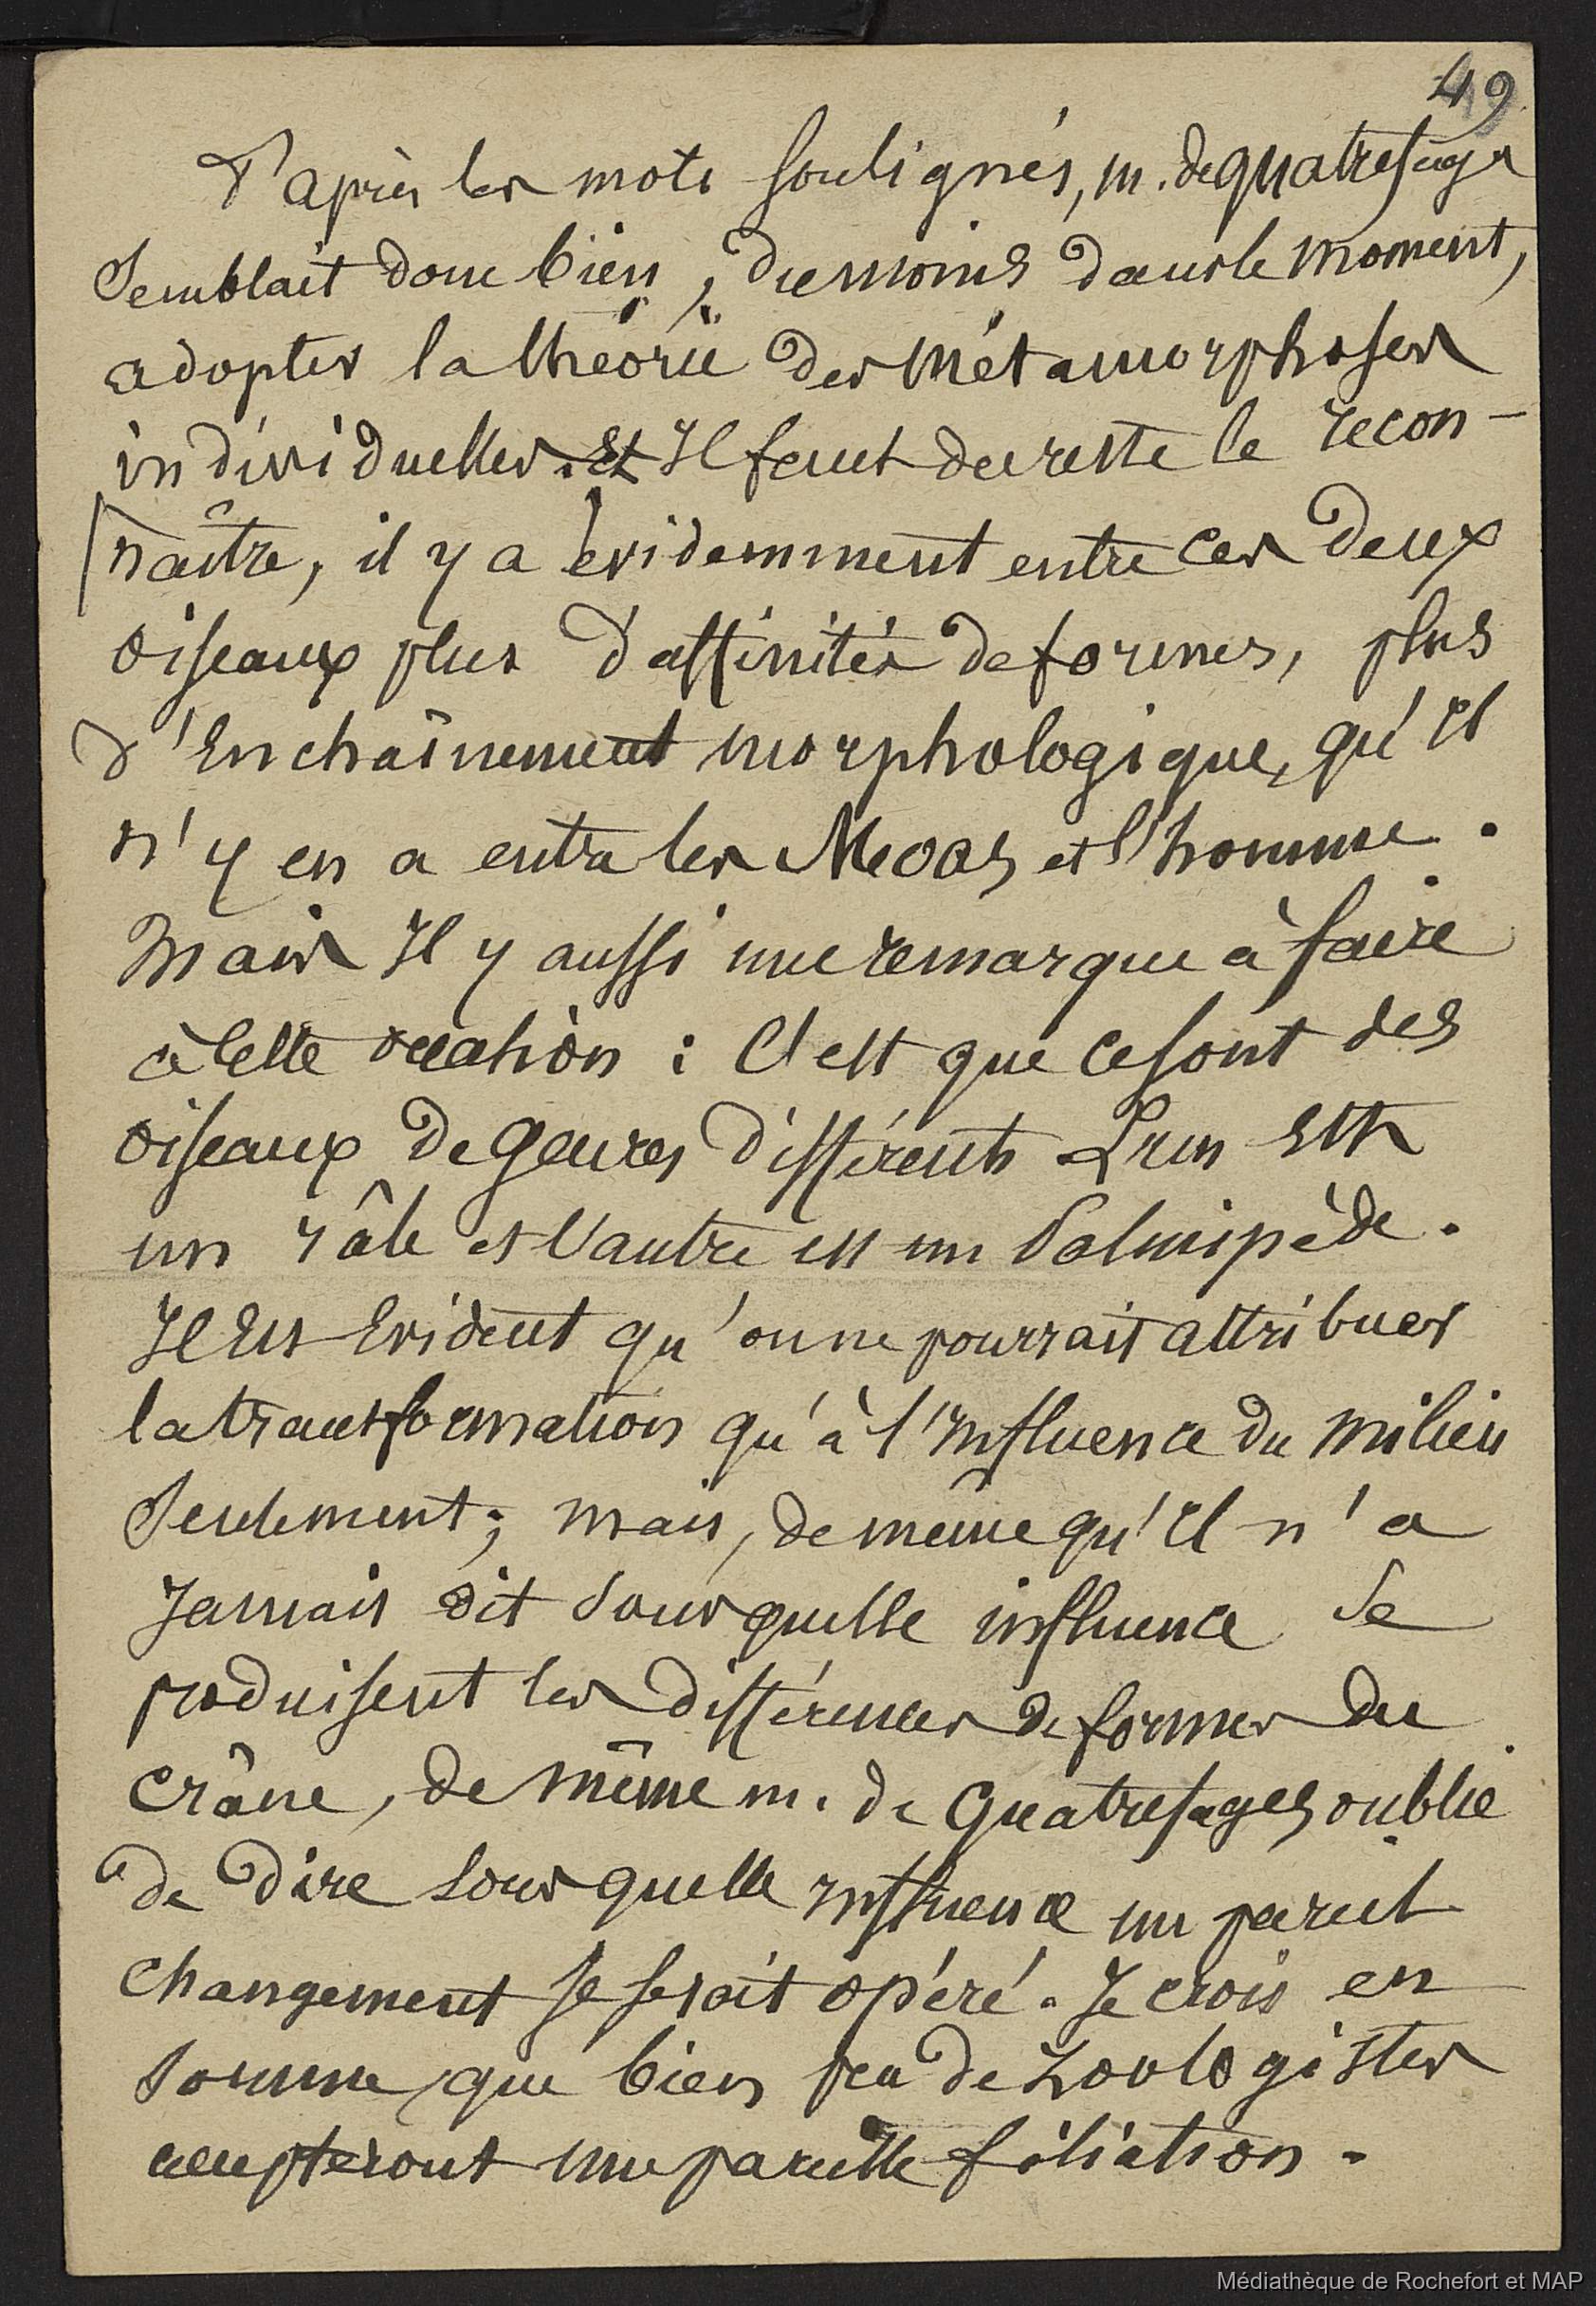 49
D'après les mots soulignés, m. de quatrefages
Semblait donc bien, du moins dans le moment,
adopter la théorie des métamorphoses
individuelles. Et Il faut du reste le recon-
naître, il y a évidemment entre ces deux
oiseaux plus d'affinités de formes, plus
d'Enchaînement morphologique, qu'il
n'y en a entre les Moas et l'homme.
Mais Il y aussi une remarque à faire
à cette occasion : C'est que ce sont des
oiseaux de genres différents L'un Est
un râle et l'autre est un Palmipède.
Il Est Evident qu'on ne pourrait attribuer
la transformation qu'à l'Influence du milieu
Seulement ; mais, de même qu'Il n'a
Jamais dit sous quelle influence se
produisent les différences de formes du
crâne, de même m. de Quatrefages oublie
de dire sous quelle Influence un pareil
changement se serait opéré. Je crois en
somme, que bien peu de zoologistes
accepteront une pareille filiation.
Médiathèque de Rochefort et MAP